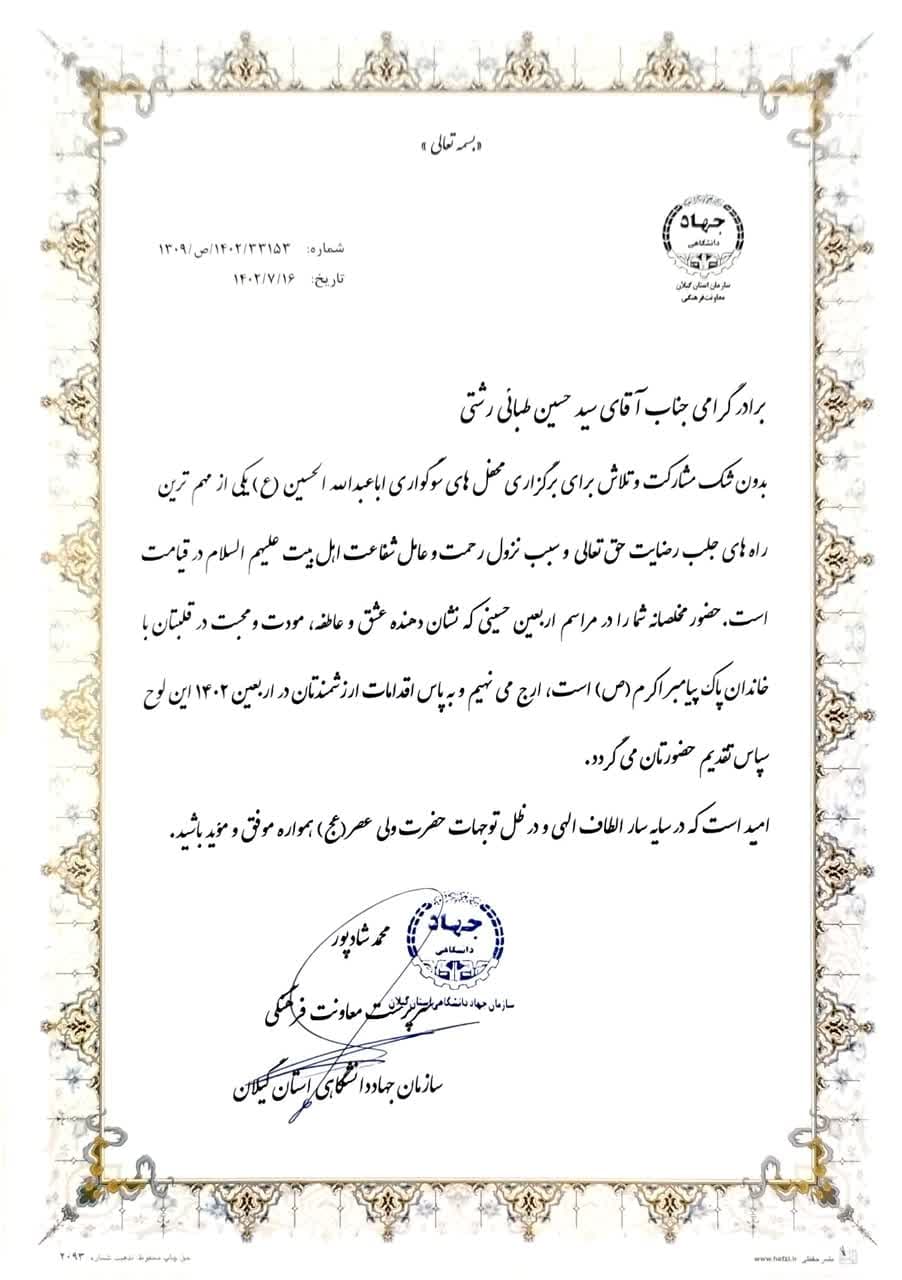 «بسمه تعالی»
جهاد
دانشگاهی
سازمان استان گیلان
معاونت فرهنگی
شماره: ۱۴۰۲/۳۳۱۵۳/ص/۱۳۰۹
تاریخ: ۱۴۰۲/۷/۱۶
برادر گرامی جناب آقای سید حسین طبائی رشتی
بدون شک مشارکت و تلاش برای برگزاری محفل های سوگواری اباعبدالله الحسین (ع) یکی از مهم ترین
راه های جلب رضایت حق تعالی و سبب نزول رحمت و عامل شفاعت اهل بیت علیهم السلام در قیامت
است. حضور مخلصانه شما را در مراسم اربعین حسینی که نشان دهنده عشق و عاطفه، مودت و محبت در قلبتان با
خاندان پاک پیامبر اکرم (ص) است، ارج می نهیم و به پاس اقدامات ارزشمندتان در اربعین ۱۴۰۲ این لوح
سپاس تقدیم حضورتان می گردد.
امید است که در سایه سار الطاف الهی و در ظل توجهات حضرت ولی عصر(عج) همواره موفق و مؤید باشید.
جهاد
دانشگاهی
سازمان جهاد دانشگاهی استان گیلان
محمد شادپور
سرپرست معاونت فرهنگی
سازمان جهاددانشگاهی استان گیلان
حق چاپ محفوظ. تذهیب شماره ۲۰۹۳
نشر حفظی www.hefzi.ir